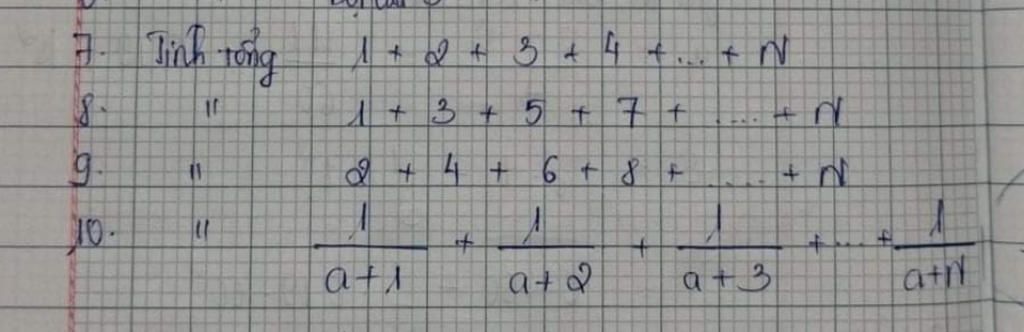 7. Tính tổng 1 + 2 + 3 + 4 + ... + N
8. " 1 + 3 + 5 + 7 + ..... + N
9. " 2 + 4 + 6 + 8 + ..... + N
10. " 1/(a+1) + 1/(a+2) + 1/(a+3) + ... + 1/(a+N)